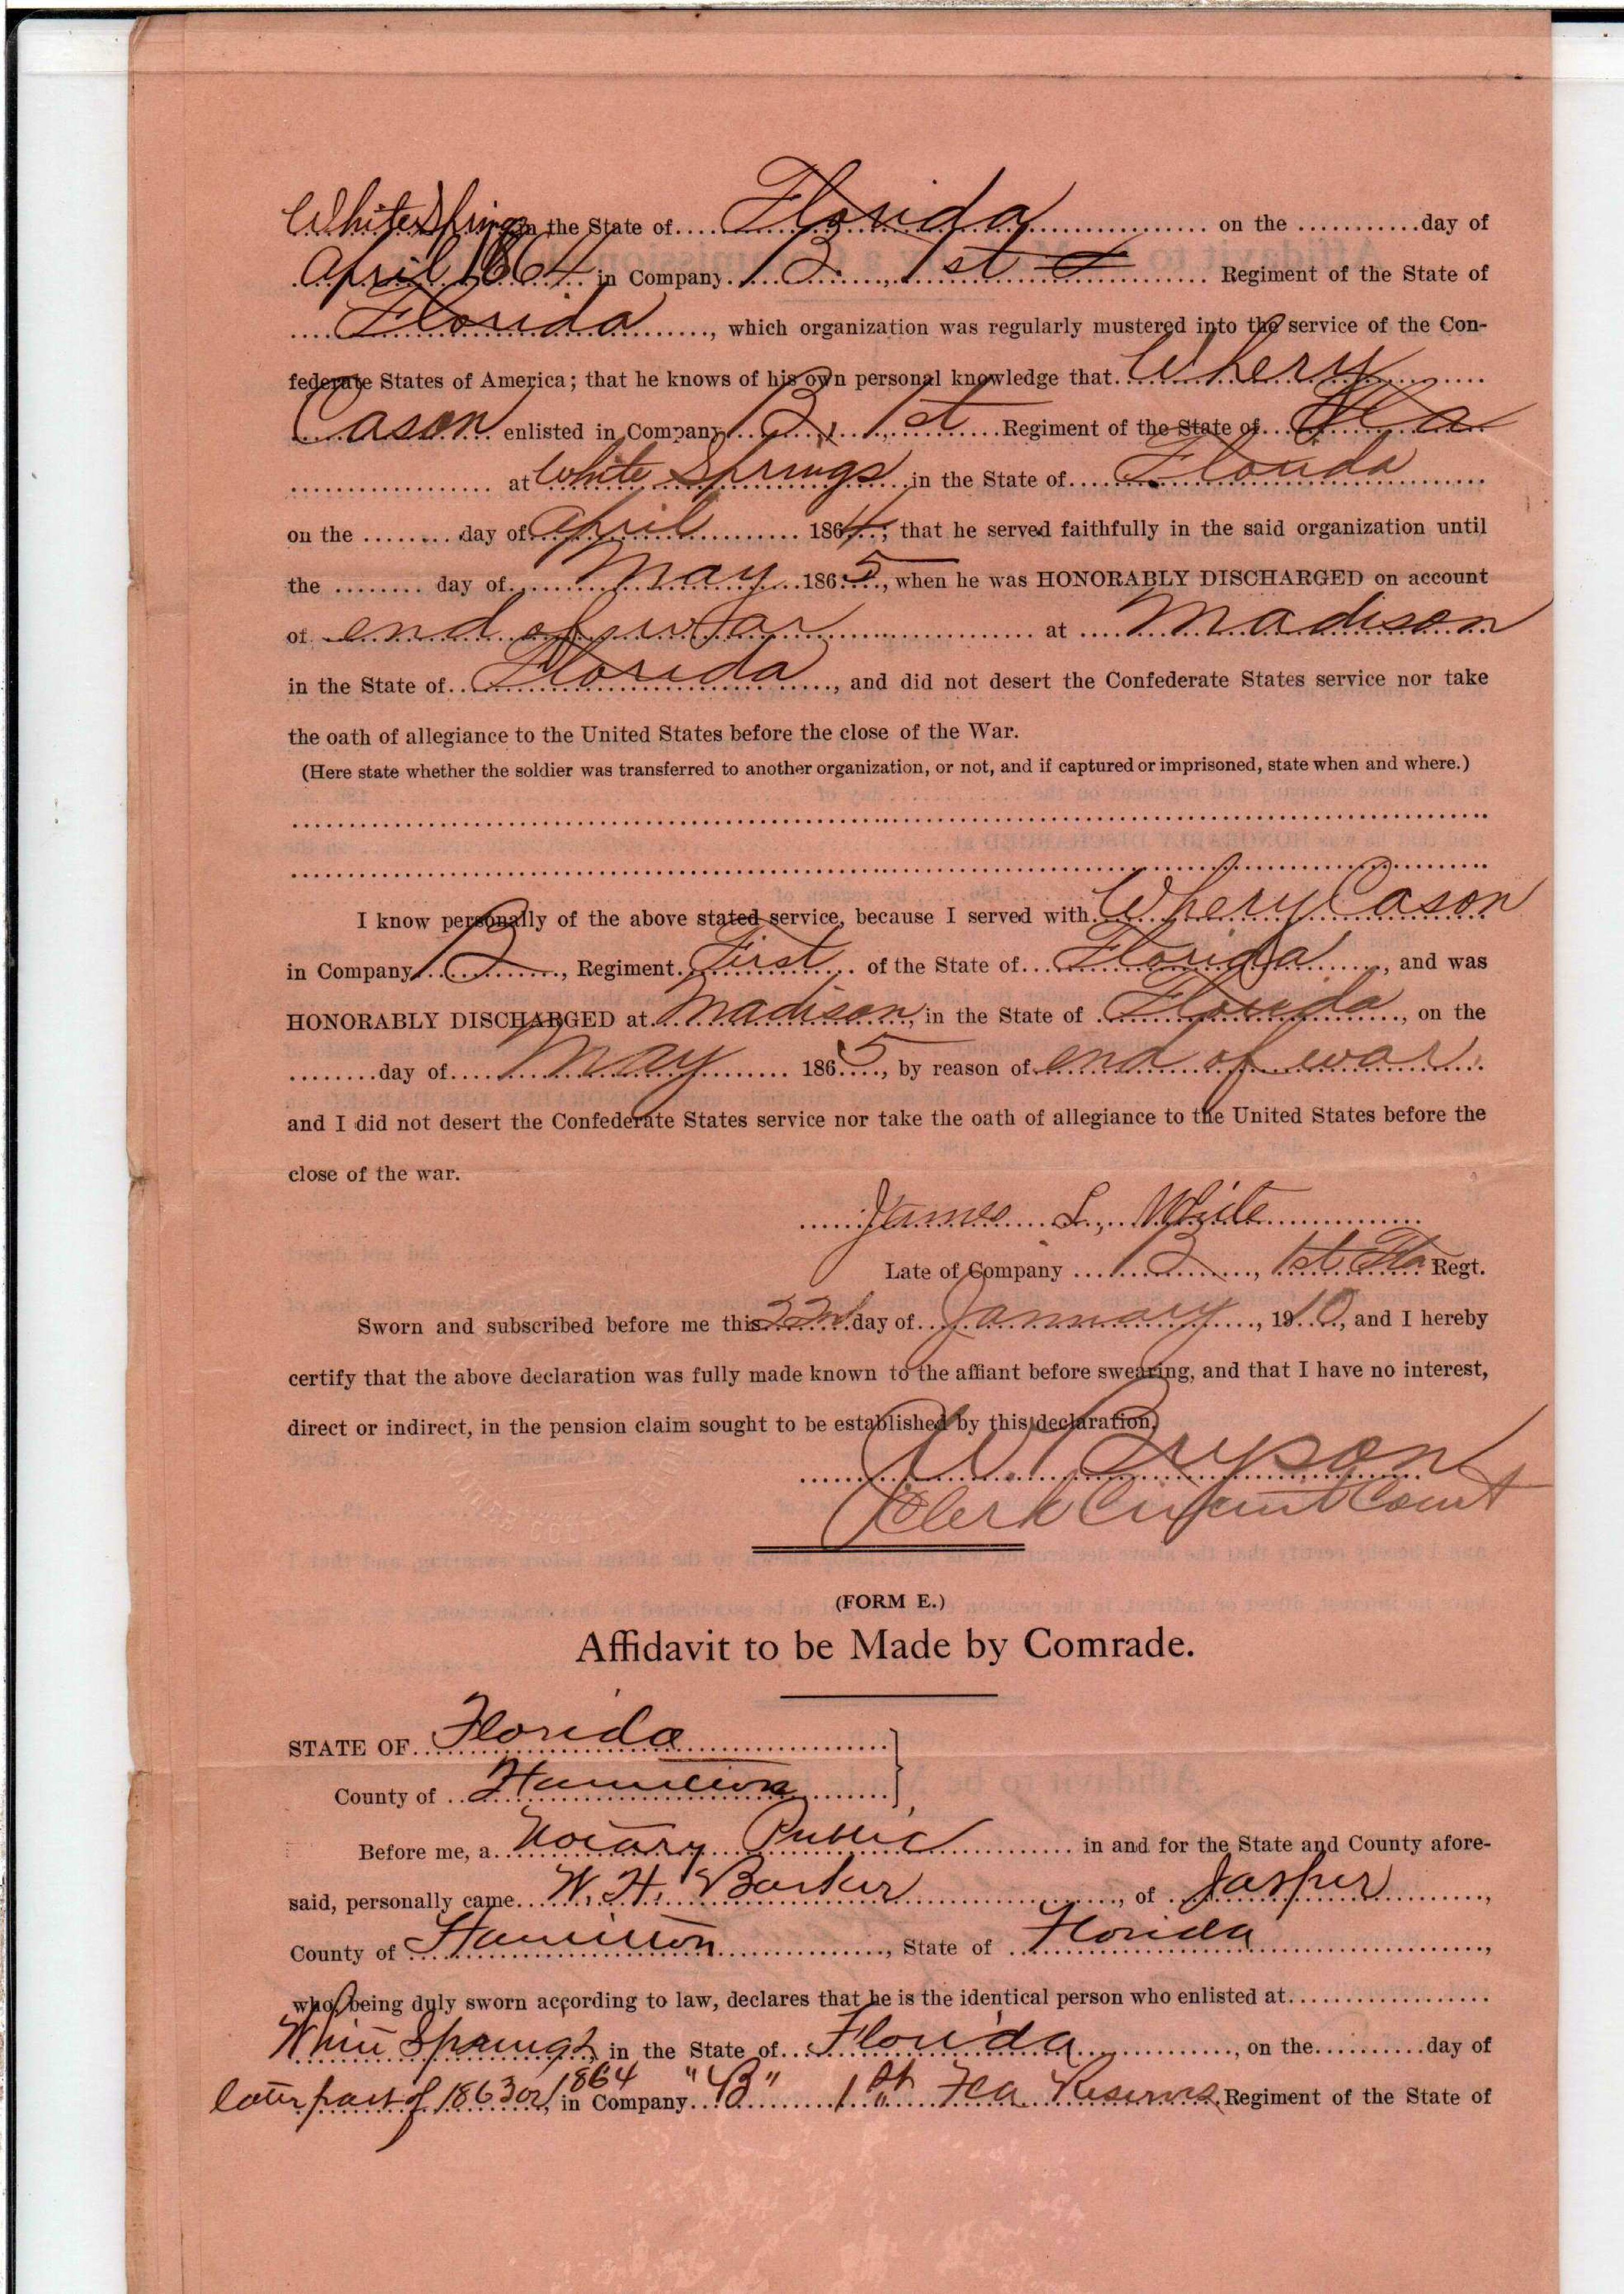 White Springs in the State of Florida on the ........... day of
April 1864 in Company B. 1st Regiment of the State of
Florida, which organization was regularly mustered into the service of the Con-
federate States of America; that he knows of his own personal knowledge that Whery
Cason enlisted in Company B, 1st Regiment of the State of Fla
at White Springs in the State of Florida
on the ........ day of April 1864; that he served faithfully in the said organization until
the ........ day of May 1865, when he was HONORABLY DISCHARGED on account
of end of war at Madison
in the State of Florida, and did not desert the Confederate States service nor take
the oath of allegiance to the United States before the close of the War.
(Here state whether the soldier was transferred to another organization, or not, and if captured or imprisoned, state when and where.)
I know personally of the above stated service, because I served with Whery Cason
in Company B, Regiment First of the State of Florida, and was
HONORABLY DISCHARGED at Madison, in the State of Florida, on the
........ day of May 1865, by reason of end of war
and I did not desert the Confederate States service nor take the oath of allegiance to the United States before the
close of the war.
James L. White
Late of Company B, 1st Fla Regt.
Sworn and subscribed before me this 22nd day of January, 1910, and I hereby
certify that the above declaration was fully made known to the affiant before swearing, and that I have no interest,
direct or indirect, in the pension claim sought to be established by this declaration.
Bryson
Clerk Circuit Court
(FORM E.)
Affidavit to be Made by Comrade.
STATE OF Florida
County of Hamilton
Before me, a Notary Public in and for the State and County afore-
said, personally came W. H. Barker, of Jasper,
County of Hamilton, State of Florida,
who, being duly sworn according to law, declares that he is the identical person who enlisted at
White Springs, in the State of Florida, on the .......... day of
later part of 1863 or 1864, in Company "B" 1st Fla Reserves Regiment of the State of